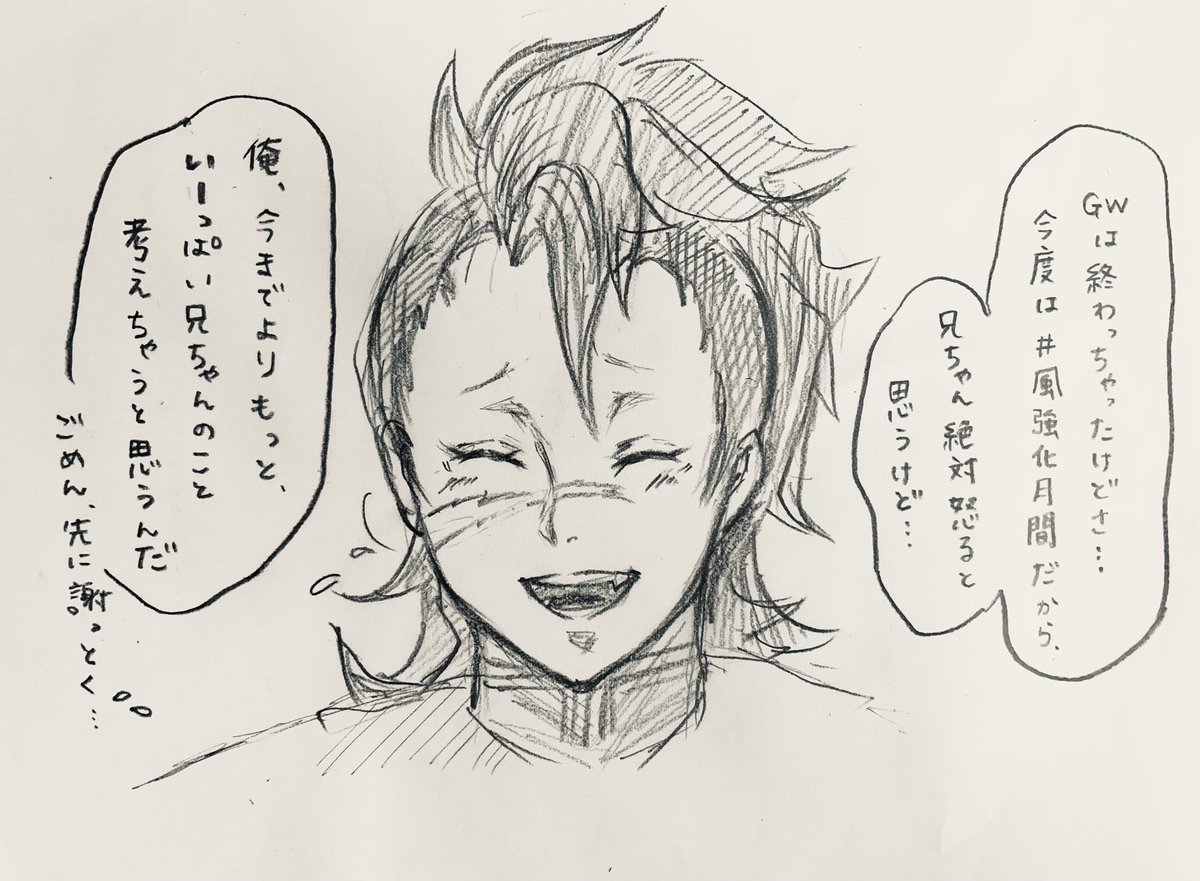 GWは終わっちゃったけどさ…
今度は#風強化月間だから、
兄ちゃん絶対怒ると
思うけど…
俺、今までよりもっと、
いーっぱい兄ちゃんのこと
考えちゃうと思うんだ
ごめん、先に謝っとく…